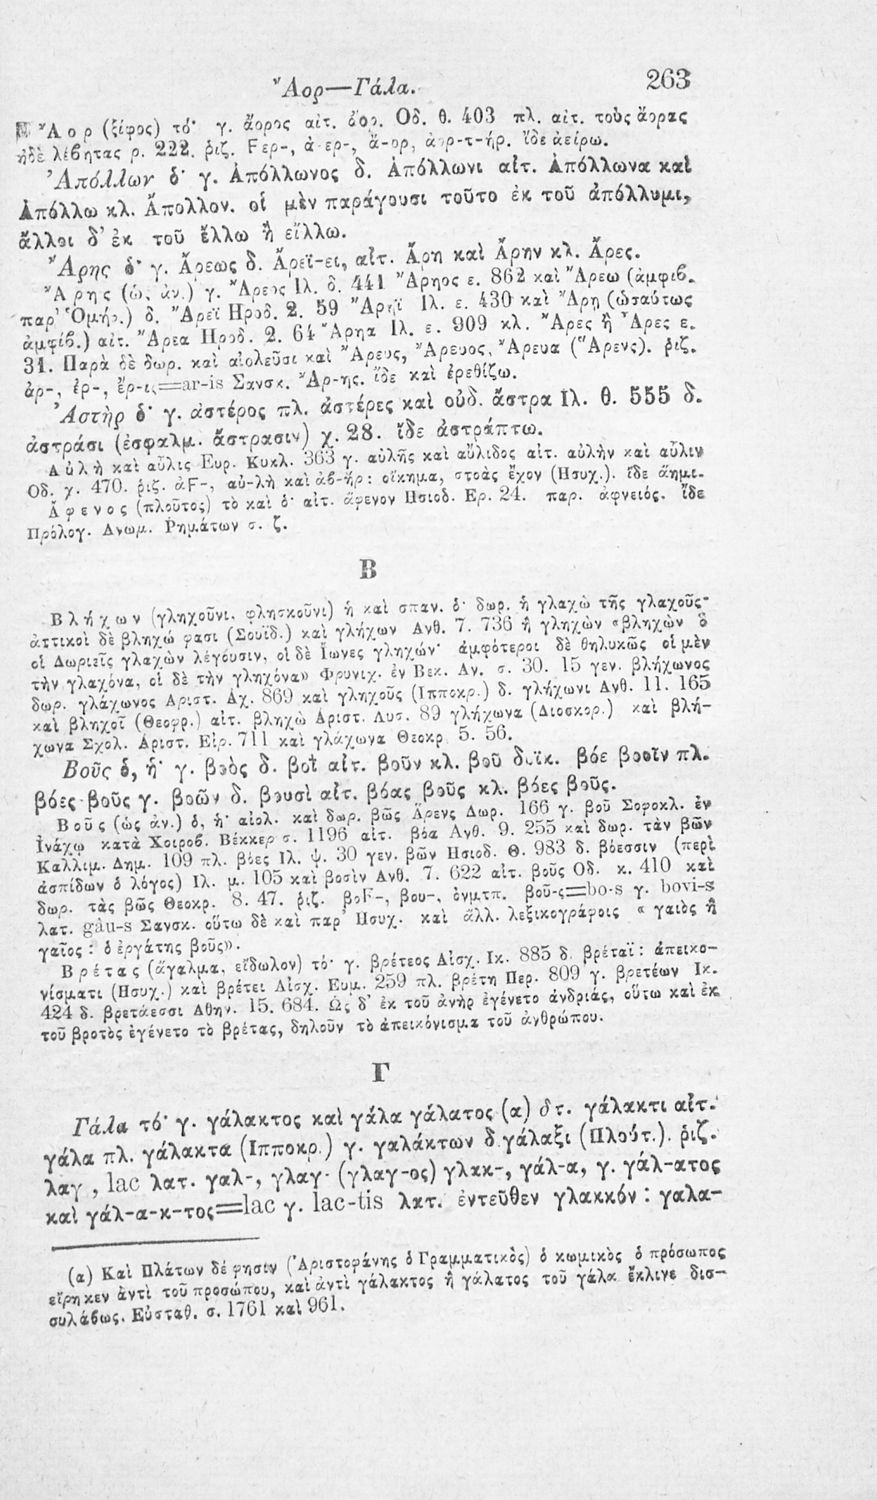 Ἄορ—Γάλα. 263
Ἄορ (ξίφος) τό· γ. ἄορος αἰτ. ἄορ. Οδ. θ. 403 πλ. αἰτ. τοὺς ἄορας
ἠδὲ λέβητας ρ. 222. ῥιζ. Fερ-, ἀ-ερ-, ἄ-ορ, ἀορ-τ-ήρ. ἴδε ἀείρω.
Ἀπόλλων ὁ· γ. Ἀπόλλωνος δ. Ἀπόλλωνι αἰτ. Ἀπόλλωνα καὶ
Ἀπόλλω κλ. Ἄπολλον. οἱ μὲν παράγουσι τοῦτο ἐκ τοῦ ἀπόλλυμι,
ἄλλοι δ’ ἐκ τοῦ ἕλλω ἢ εἴλλω.
Ἄρης ὁ· γ. Ἄρεως δ. Ἄρεϊ-ει, αἰτ. Ἄρη καὶ Ἄρην κλ. Ἄρες.
Ἄρης (ὡς ἀν.) γ. Ἄρεος Ἰλ. δ. 441 Ἄρηος ε. 862 καὶ Ἄρεω (ἀμφιβ.
παρ’ Ὁμήρ.) δ. Ἄρεϊ Ηροδ. 2. 59 Ἄρηϊ Ἰλ. ε. 430 καὶ Ἄρῃ (ὡσαύτως
ἀμφίβ.) αἰτ. Ἄρεα Ηροδ. 2. 64 Ἄρηα Ἰλ. ε. 909 κλ. Ἄρες ἢ Ἆρες ε.
31. Παρὰ δὲ δωρ. καὶ αἰολεῦσι καὶ Ἄρευς, Ἄρευος, Ἄρευα (Ἄρενς). ῥιζ.
ἀρ-, ἐρ-, ἔρ-ις=ar-is Σανσκ. Ἄρ-ης. ἴδε καὶ ἐρεθίζω.
Ἀστὴρ ὁ· γ. ἀστέρος πλ. ἀστέρες καὶ οὐδ. ἄστρα Ἰλ. θ. 555 δ.
ἀστράσι (ἐσφαλμ. ἄστρασιν) χ. 28. ἴδε ἀστράπτω.
Αὐλὴ καὶ αὖλις Ευρ. Κυκλ. 363 γ. αὐλῆς καὶ αὔλιδος αἰτ. αὐλὴν καὶ αὖλιν
Οδ. χ. 470. ῥιζ. ἀF-, αὐ-λὴ καὶ ἀβ-ήρ: οἴκημα, στοὰς ἔχον (Ησυχ.). ἴδε ἄημι.
Ἄφενος (πλοῦτος) τὸ καὶ ὁ· αἰτ. ἄφενον Ησιοδ. Ερ. 24. παρ. ἀφνειός. ἴδε
Πρόλογ. Ανωμ. Ῥημάτων σ. ζ.
Β
Βλήχων (γληχοῦνι, φλησκοῦνι) ἡ καὶ σπαν. ὁ· δωρ. ἡ γλαχὼ τῆς γλαχοῦς·
ἀττικοὶ δὲ βληχώ φασι (Σουϊδ.) καὶ γλήχων Ανθ. 7. 736 ἢ γληχὼν «βληχὼν ὃ
οἱ Δωριεῖς γλαχὼν λέγουσιν, οἱ δὲ Ἴωνες γληχών· ἀμφότεροι δὲ θηλυκῶς οἱ μὲν
τὴν γλαχόνα, οἱ δὲ τὴν γληχόνα» Φρυνιχ. ἐν Βεκ. Αν. σ. 30. 15 γεν. βλήχωνος
δωρ. γλάχωνος Αριστ. Ἀχ. 869 καὶ γληχοῦς (Ιπποκρ.) δ. γλήχωνι Ανθ. 11. 165
καὶ βληχοῖ (Θεοφρ.) αἰτ. βληχὼ Ἀριστ. Λυσ. 89 γλήχωνα (Διοσκορ.) καὶ βλή-
χωνα Σχολ. Ἀριστ. Εἰρ. 711 καὶ γλάχωνα Θεοκρ. 5. 56.
Βοῦς ὁ, ἡ· γ. βοὸς δ. βοῒ αἰτ. βοῦν κλ. βοῦ δυϊκ. βόε βοοῖν πλ.
βόες-βοῦς γ. βοῶν δ. βουσὶ αἰτ. βόας βοῦς κλ. βόες βοῦς.
Βοῦς (ὡς ἀν.) ὁ, ἡ· αἰολ. καὶ δωρ. βῶς Ἄρενς Δωρ. 166 γ. βοῦ Σοφοκλ. ἐν
Ἰνάχῳ κατὰ Χοιροβ. Βέκκερ σ. 1196 αἰτ. βόα Ανθ. 9. 255 καὶ δωρ. τὰν βῶν
Καλλιμ. Δημ. 109 πλ. βόες Ἰλ. ψ. 30 γεν. βῶν Ησιοδ. Θ. 983 δ. βόεσσιν (περὶ
ἀσπίδων ὁ λόγος) Ἰλ. μ. 105 καὶ βοσὶν Ανθ. 7. 622 αἰτ. βοῦς Οδ. κ. 410 καὶ
δωρ. τὰς βῶς Θεοκρ. 8. 47. ῥιζ. βοF-, βου-, ὀνμτπ. βοῦ-ς=bo-s γ. bovi-s
λατ. gâu-s Σανσκ. οὕτω δὲ καὶ παρ’ Ησυχ. καὶ ἄλλ. λεξικογράφοις « γαιὸς ἢ
γαῖος : ὁ ἐργάτης βοῦς».
Βρέτας (ἄγαλμα, εἴδωλον) τό· γ. βρέτεος Αἰσχ. Ικ. 885 δ. βρέταϊ: ἀπεικο-
νίσματι (Ησυχ.) καὶ βρέτει Αἰσχ. Ευμ. 259 πλ. βρέτη Περ. 809 γ. βρετέων Ικ.
424 δ. βρετάεσσι Αθην. 15. 684. Ὡς δ’ ἐκ τοῦ ἀνὴρ ἐγένετο ἀνδριάς, οὕτω καὶ ἐκ
τοῦ βροτὸς ἐγένετο τὸ βρέτας, δηλοῦν τὸ ἀπεικόνισμα τοῦ ἀνθρώπου.
Γ
Γάλα τό· γ. γάλακτος καὶ γάλα γάλατος (α) δτ. γάλακτι αἰτ.
γάλα πλ. γάλακτα (Ιπποκρ.) γ. γαλάκτων δ. γάλαξι (Πλούτ.). ῥιζ.
λαγ, lac λατ. γαλ-, γλαγ- (γλαγ-ος) γλακ-, γάλ-α, γ. γάλ-ατος
καὶ γάλ-α-κ-τος=lac γ. lac-tis λατ. ἐντεῦθεν γλακκόν : γαλα-
(α) Καὶ Πλάτων δέ φησιν (Ἀριστοφάνης ὁ Γραμματικὸς) ὁ κωμικὸς ὁ πρόσωπος
εἴρηκεν ἀντὶ τοῦ προσώπου, καὶ ἀντὶ γάλακτος ἢ γάλατος τοῦ γάλα ἔκλινε δισ-
συλάβως. Εὐσταθ. σ. 1761 καὶ 961.